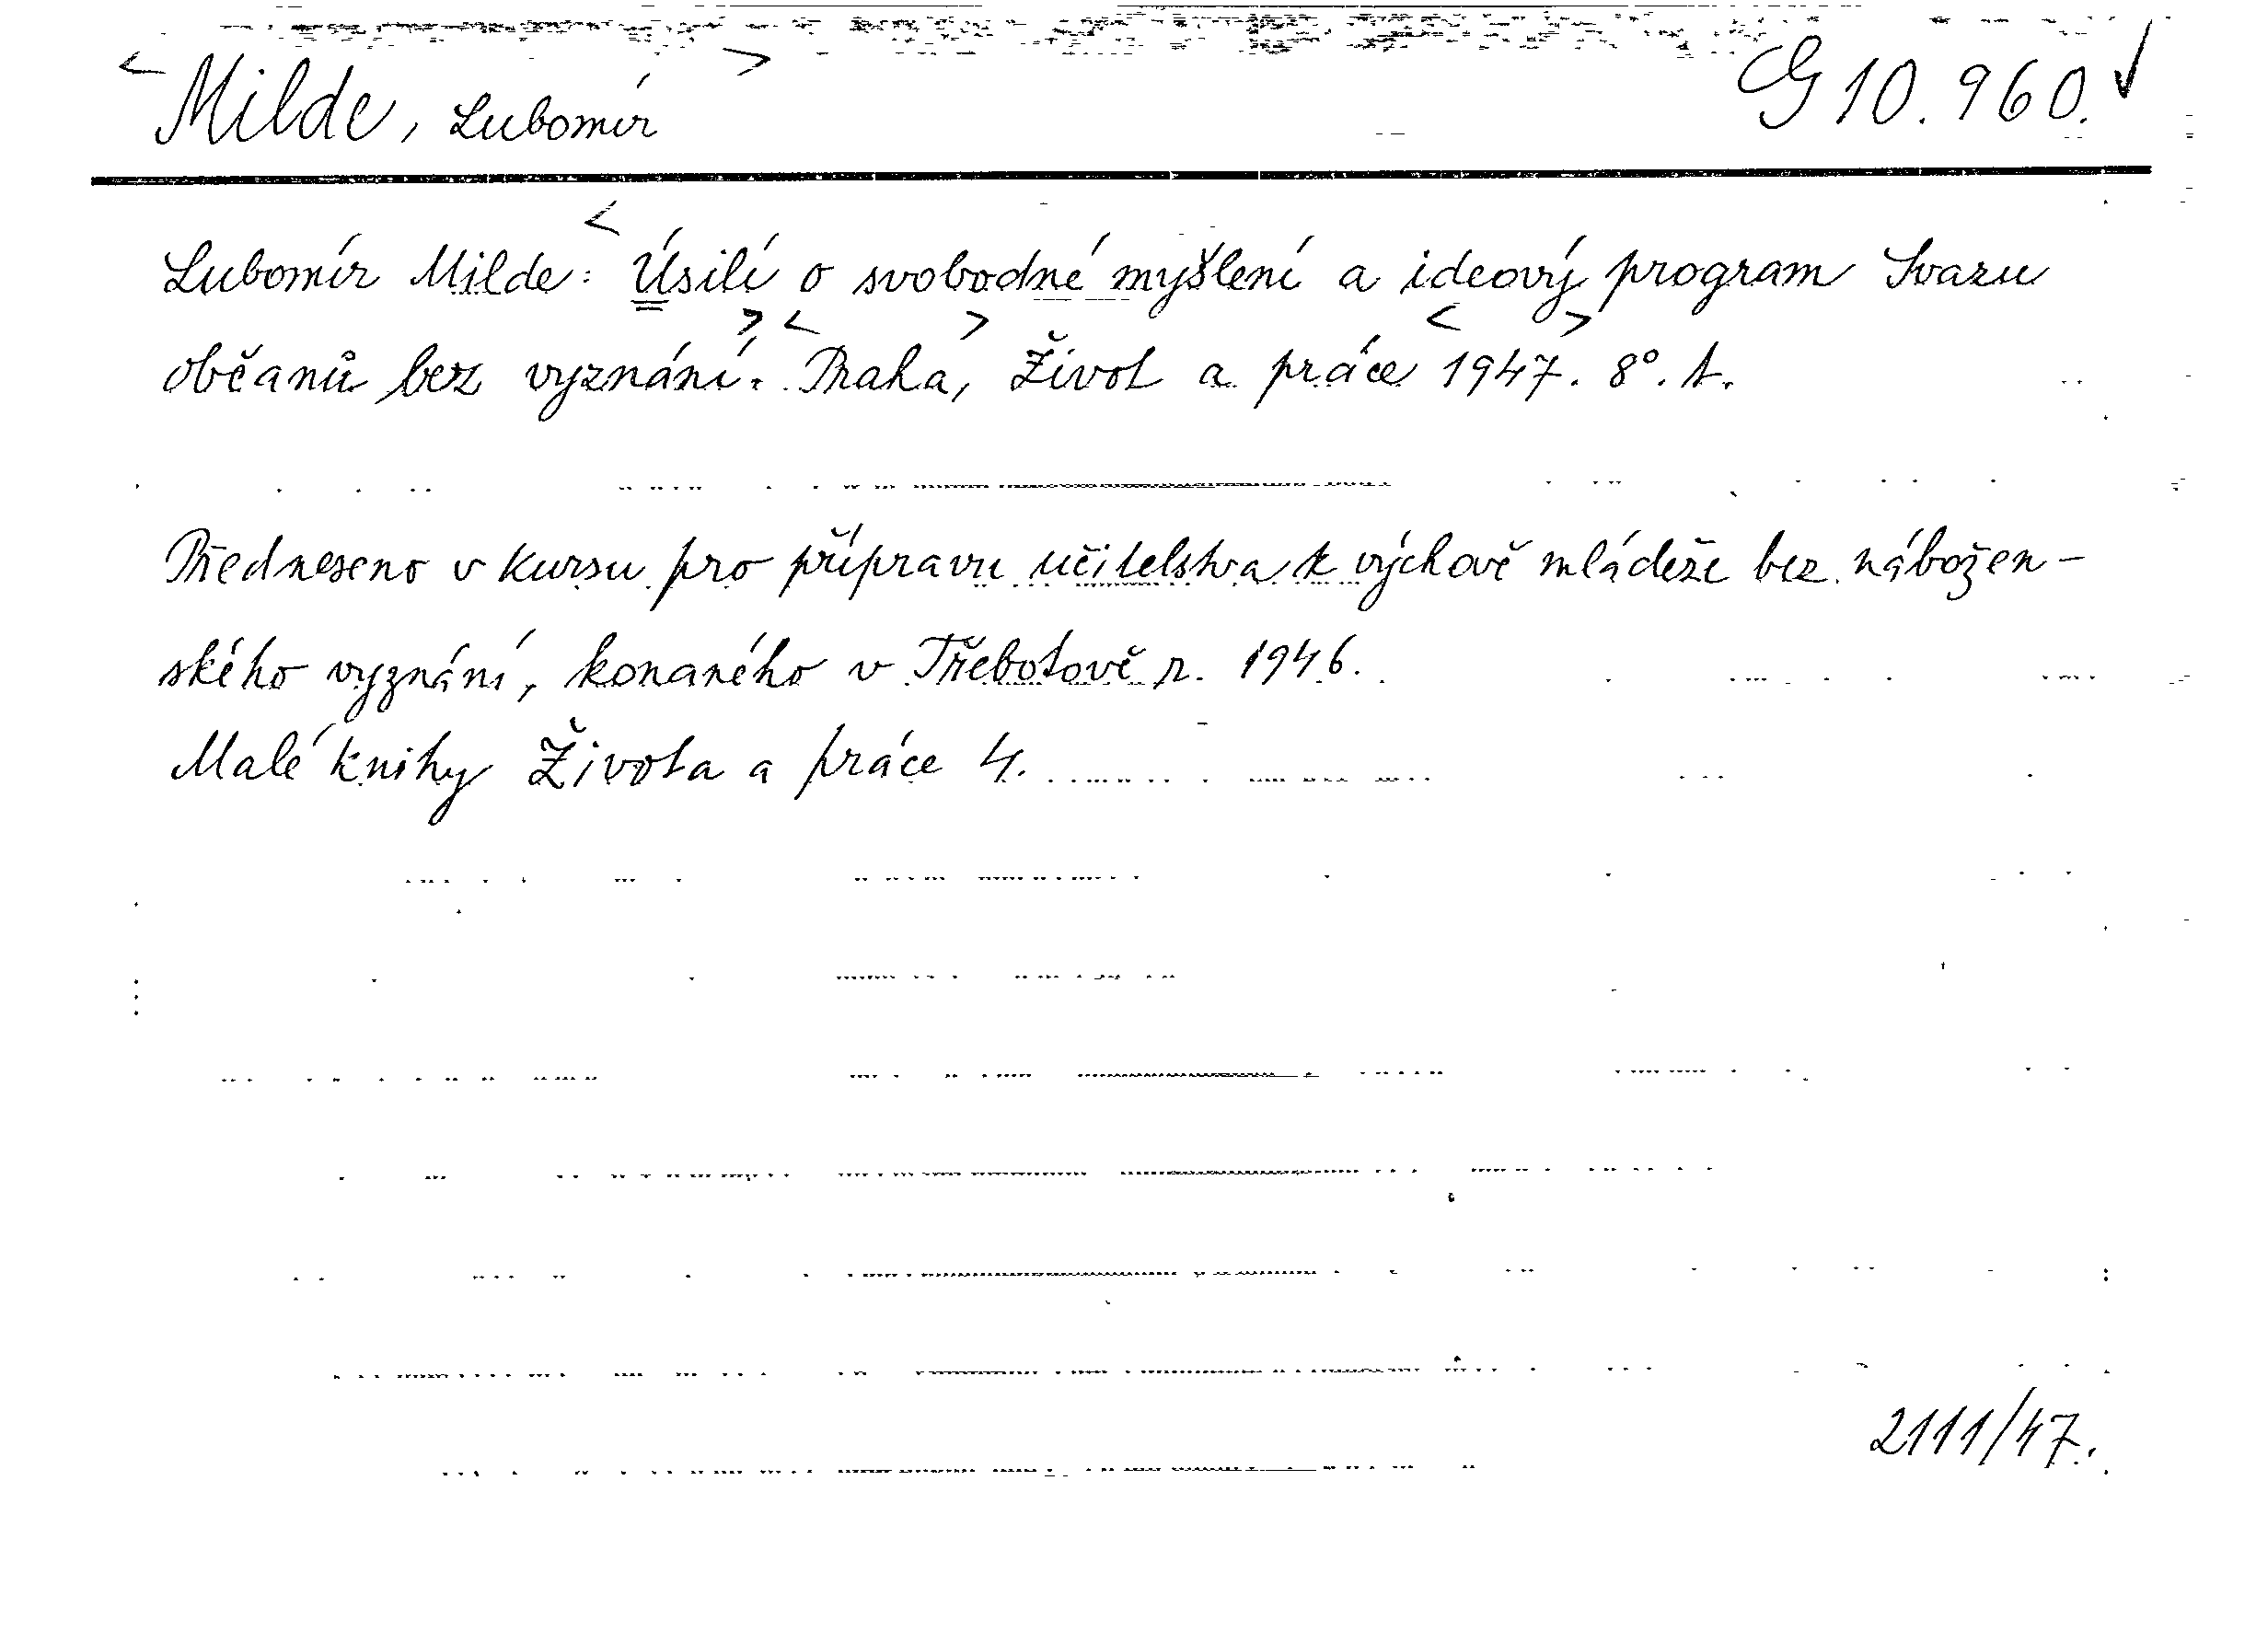 <Milde, Lubomír> G 10.960.✓
Lubomír Milde: <Úsilí o svobodné myšlení a ideový program Svazu
občanů bez vyznání.> <Praha,> Život a práce <1947.> 8°. A.
Předneseno v kursu pro přípravu učitelstva k výchově mládeže bez nábožen-
ského vyznání, konaného v Třebotově r. 1946.
Malé knihy Života a práce 4.
2111/47.